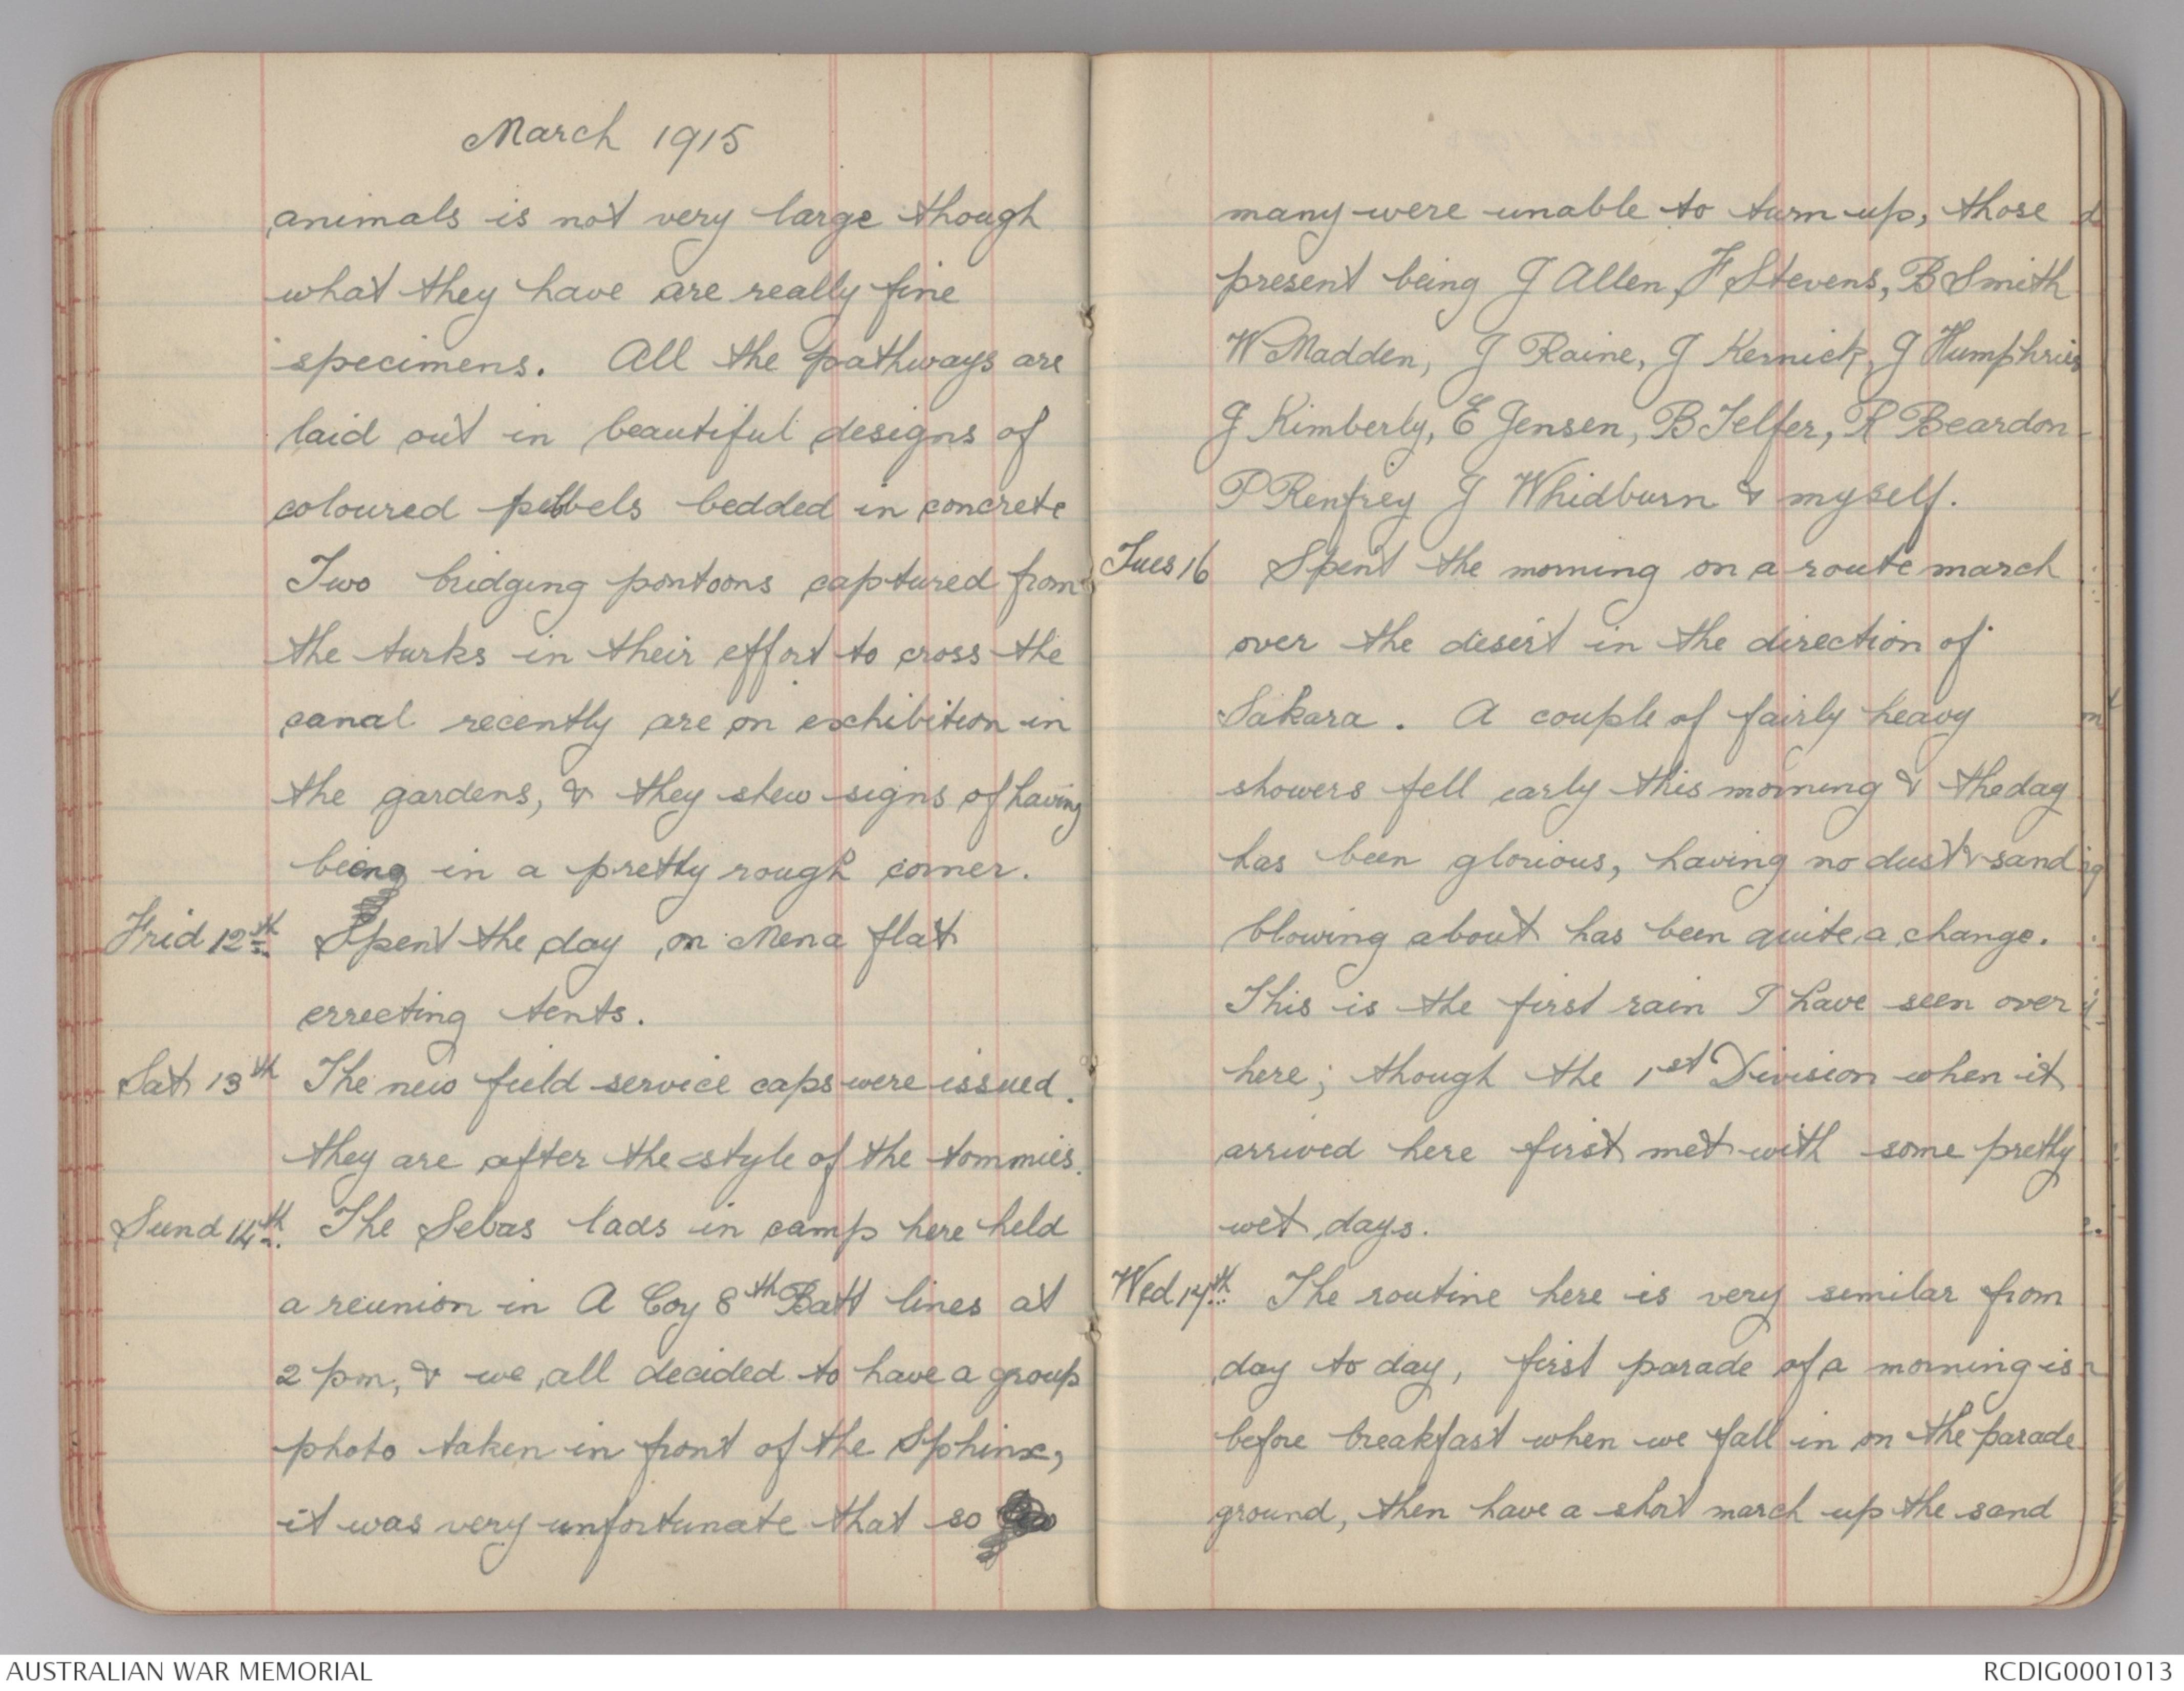 March 1915
animals is not very large though
what they have are really fine
specimens. All the pathways are
laid out in beautiful designs of
coloured pebbels bedded in concrete
Two bridging pontoons captured from
the turks in their effort to cross the
canal recently are on exhibition in
the gardens, & they shew signs of having
being in a pretty rough corner.
Frid 12th Spent the day on Mena flat
errecting tents.
Sat 13th The new field service caps were issued.
they are after the style of the tommies.
Sund 14th. The Sebas lads in camp here held
a reunion in A Coy 8th Batt lines at
2 pm, & we all decided to have a group
photo taken in front of the Sphinx,
it was very unfortunate that so
many were unable to turn up, those
present being J Allen, F Stevens, B Smith
W Madden, J Raine, J Kernick, J Humphries
J Kimberly, E Jensen, B Telfer, R Beardon
P Renfrey J Whidburn & myself.
Tues 16 Spent the morning on a route march
over the desert in the direction of
Sakara. A couple of fairly heavy
showers fell early this morning & the day
has been glorious, having no dust & sand
blowing about has been quite a change.
This is the first rain I have seen over
here; though the 1st Division when it
arrived here first met with some pretty
wet days.
Wed 17th. The routine here is very similar from
day to day, first parade of a morning is
before breakfast when we fall in on the parade
ground, then have a short march up the sand
AUSTRALIAN WAR MEMORIAL
RCDIG0001013